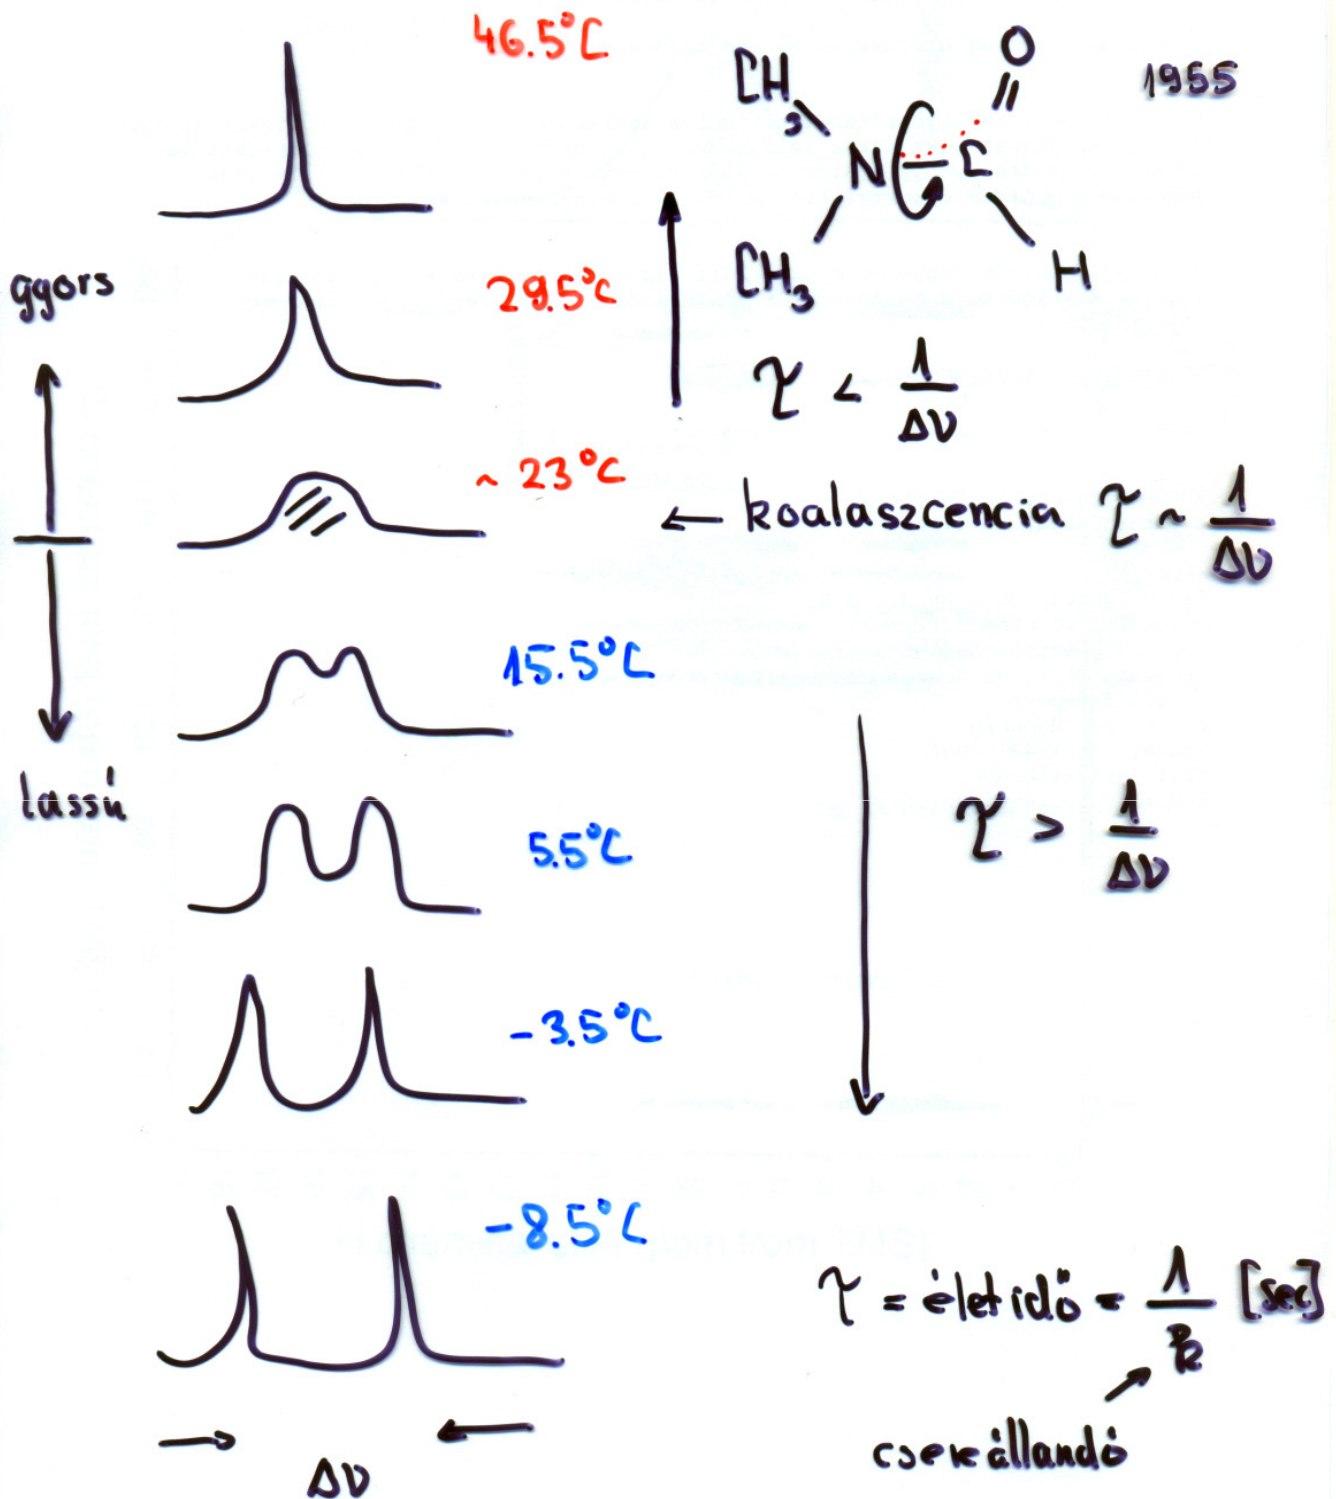 46.5°C
CH3
O
1955
N
C
CH3
H
ggors
29.5°C
τ < 1/Δν
~ 23°C
← koalaszcencia τ ~ 1/Δν
15.5°C
lassú
5.5°C
τ > 1/Δν
-3.5°C
-8.5°C
τ = életidő = 1/k [sec]
Δν
csereállandó